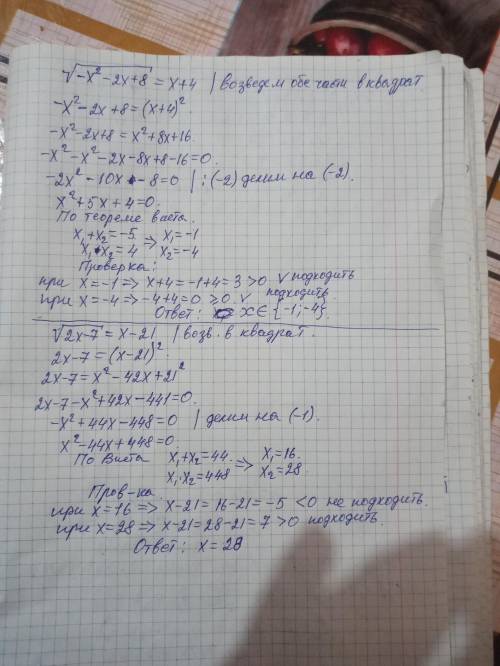 √(-x²-2x+8) = x+4 | возведем обе части в квадрат
-x²-2x+8=(x+4)²
-x²-2x+8=x²+8x+16
-x²-x²-2x-8x+8-16=0.
-2x²-10x-8=0 | :(-2) делим на (-2).
x²+5x+4=0.
По теореме виета.
x₁+x₂=-5 ⇒ x₁=-1
x₁·x₂=4 x₂=-4
Проверка:
при x=-1 ⇒ x+4=-1+4=3>0 v подходить
при x=-4 ⇒ -4+4=0 ≥0 v подходить
Ответ: x∈{-1;-4}.
√(2x-7) = x-21 | возв. в квадрат.
2x-7=(x-21)².
2x-7=x²-42x+21²
2x-7-x²+42x-441=0.
-x²+44x-448=0 | делим на (-1).
x²-44x+448=0
По Виета x₁+x₂=44. ⇒ x₁=16.
x₁·x₂=448 x₂=28.
Пров-ка.
при x=16 ⇒ x-21=16-21=-5 <0 не подходить.
при x=28 ⇒ x-21=28-21=7>0 подходить.
Ответ: x=28